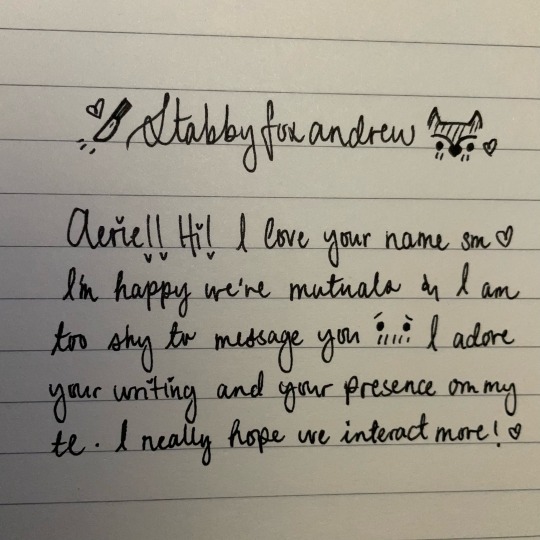 Stabbyfoxandrew
Aerie!! Hi! I love your name sm ♡
I'm happy we're mutuals & I am
too shy to message you I adore
your writing and your presence on my
tl. I really hope we interact more! ♡